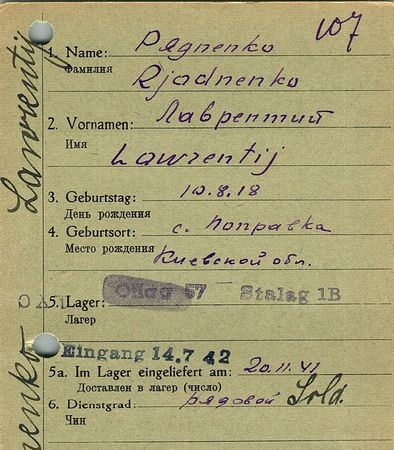 107
1. Name: Рядненко
Фамилия Rjadnenko
2. Vornamen: Лаврентий
Имя Lawrentij
3. Geburtstag: 10.8.18
День рождения
4. Geburtsort: с. Поправка
Место рождения Киевской обл.
5. Lager: Oflag 57 Stalag 1B
Лагер
Eingang 14.7 42
5a. Im Lager eingeliefert am: 20.11.41
Доставлен в лагер (число)
6. Dienstgrad: рядовой Sold.
Чин
Lawrentij
nenko